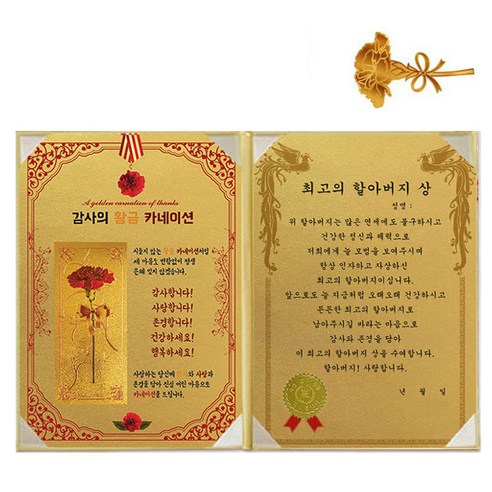 A golden carnation of thanks
감사의 황금 카네이션
시들지 않는 황금 카네이션처럼
제 마음도 변함없이 평생
은혜 잊지 않겠습니다.
감사합니다!
사랑합니다!
존경합니다!
건강하세요!
행복하세요!
사랑하는 당신께 감사와 사랑과
존경을 담아 진심 어린 마음으로
카네이션을 드립니다.
최고의 할아버지 상
성명 :
위 할아버지는 많은 연세에도 불구하시고
건강한 정신과 체력으로
저희에게 늘 모범을 보여주시며
항상 인자하고 자상하신
최고의 할아버지이십니다.
앞으로도 늘 지금처럼 오래오래 건강하시고
든든한 최고의 할아버지로
남아주시길 바라는 마음으로
감사와 존경을 담아
이 최고의 할아버지 상을 수여합니다.
할아버지! 사랑합니다.
년 월 일